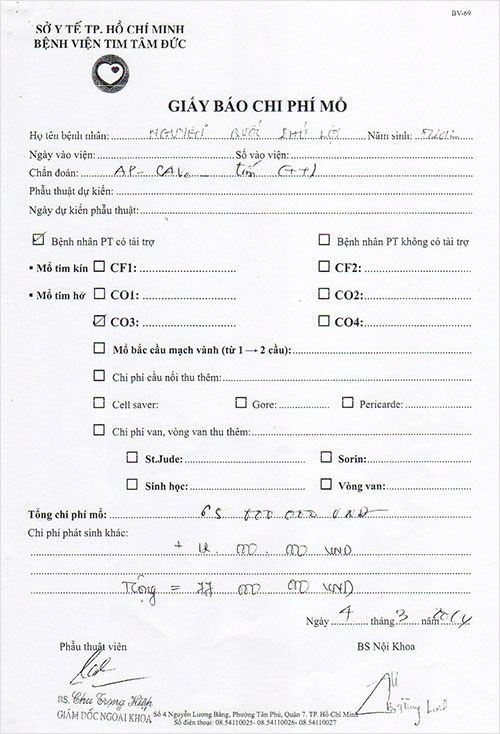 BV-69
SỞ Y TẾ TP. HỒ CHÍ MINH
BỆNH VIỆN TIM TÂM ĐỨC
GIẤY BÁO CHI PHÍ MỔ
Họ tên bệnh nhân: NGUYỄN Năm sinh:
Ngày vào viện: Số vào viện:
Chẩn đoán: AP-
Phẫu thuật dự kiến:
Ngày dự kiến phẫu thuật:
Bệnh nhân PT có tài trợ Bệnh nhân PT không có tài trợ
▪ Mổ tim kín CF1: CF2:
▪ Mổ tim hở CO1: CO2:
CO3: CO4:
Mổ bắc cầu mạch vành (từ 1 → 2 cầu):
Chi phí cầu nối thu thêm:
Cell saver: Gore: Pericarde:
Chi phí van, vòng van thu thêm:
St.Jude: Sorin:
Sinh học: Vòng van:
Tổng chi phí mổ: 000 000 VND
Chi phí phát sinh khác:
+ 000. 000 VND
Tổng = 77 000 000 VND
Ngày 4 tháng 3 năm 2014
Phẫu thuật viên BS Nội Khoa
BS. Chu Trọng Hiệp
GIÁM ĐỐC NGOẠI KHOA
Số 4 Nguyễn Lương Bằng, Phường Tân Phú, Quận 7. TP. Hồ Chí Minh
Số điện thoại: 08.54110025- 08.54110026- 08.54110027